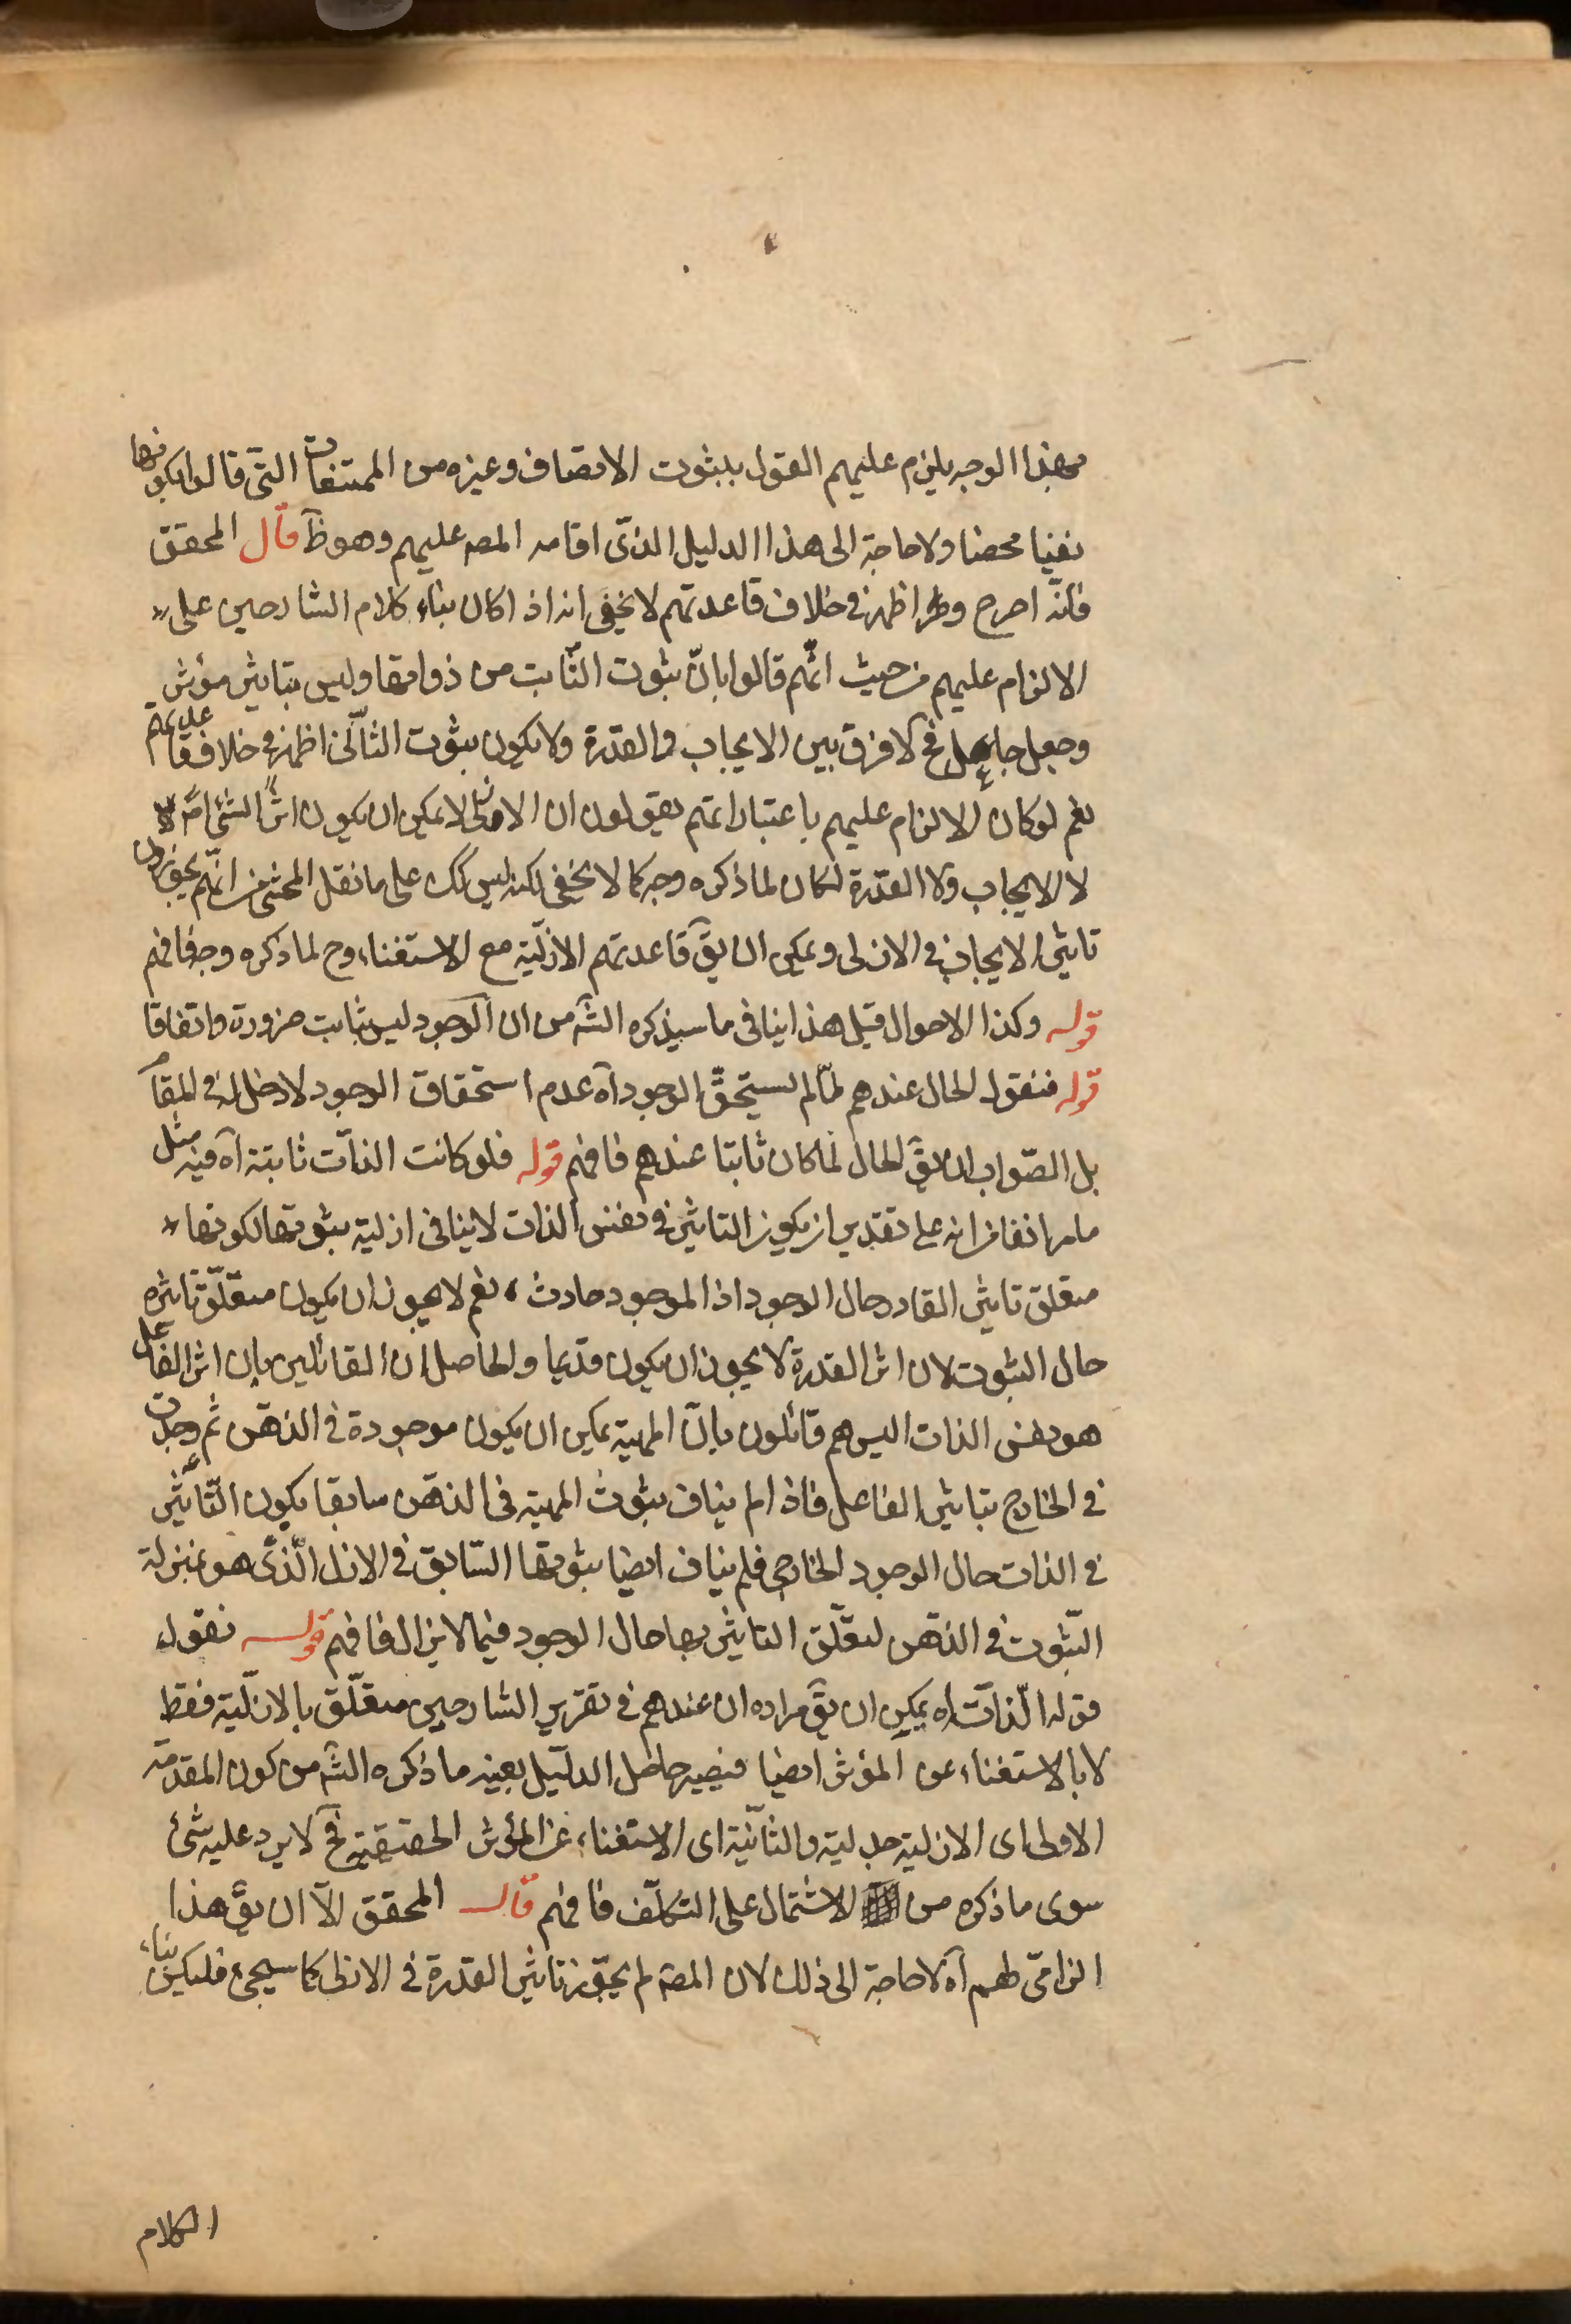 بهذا الوجه يلزم عليهم القول بثبوت الاتصاف وغيره من الممتنعات التى قالوا بكونها
نفيا محضا ولا حاجة الى هذا الدليل الذى اقامه المصه عليهم وهو ظ قال المحقق
فانه اصرح واظهر فى خلاف قاعدتهم لا يخفى انه اذا كان بناء كلام الشارحين على
الالزام عليهم من حيث انهم قالوا بان ثبوت الثابت من ذواتها وليس بتاثير مؤثر
وجعل جاعل فح لا فرق بين الايجاب والقدرة ولا يكون ثبوت الثانى اظهر فى خلاف قاعدتهم
نعم لو كان الالزام عليهم باعتبار انهم يقولون ان الازلى لا يمكن ان يكون اثرا لشئ اصلا
لا الايجاب ولا القدرة لكان لما ذكره وجه كما لا يخفى لكنه ليس كك على ما نقل المحشى من انهم يجوزون
تاثير الايجاب فى الازلى ويمكن ان يق قاعدتهم الازلية مع الاستغناء وح لما ذكره وجه فافهم
قوله وكذا الاحوال قيل هذا ينافى ما سيذكره الشه من ان الوجود ليس بثابت ضرورة واتفاقا
قوله فنقول الحال عندهم لما لم يستحق الوجود آه عدم استحقاق الوجود لا دخل له فى المقام
بل الصواب ان يق الحال لما كان ثابتا عندهم فافهم قوله فلو كانت الذات ثابتة آه فيه مثل
ما مر انفا من انه على تقدير ان يكون التاثير فى نفس الذات لا ينافى ازلية ثبوتها لكونها
متعلق تاثير القادر حال الوجود اذ الموجود حادث، نعم لا يجوز ان يكون متعلق تاثيره
حال الثبوت لان اثر القدرة لا يجوز ان يكون قديما والحاصل ان القائلين بان اثر الفاعل
هو نفس الذات اليس هم قائلون بان المهية يمكن ان يكون موجودة فى الذهن ثم وجدت
فى الخارج بتاثير الفاعل فاذا لم يناف ثبوت المهية فى الذهن سابقا يكون التاثير
فى الذات حال الوجود الخارجى فلم يناف ايضا ثبوتها السابق فى الازل الذى هو بمنزلة
الثبوت فى الذهن لتعلق التاثير بها حال الوجود فيما لا يزال فافهم قوله نقول
قوله الذات اه يمكن ان يق مراده ان عندهم فى تقرير الشارحين متعلق بالازلية فقط
لا بالاستغناء عن المؤثر ايضا فيصير حاصل الدليل بعينه ما ذكره الشه من كون المقدمة
الاولى اى الازلية جدلية والثانية اى الاستغناء عن المؤثر الحقيقية فح لا يرد عليه شئ
سوى ما ذكره من الاشتمال على التكلف فافهم قال المحقق الا ان يق هذا
الزامى لهم آه لا حاجة الى ذلك لان المصه لم يجوز تاثير القدرة فى الازلى كما سيجئ فليكن بناء
الكلام